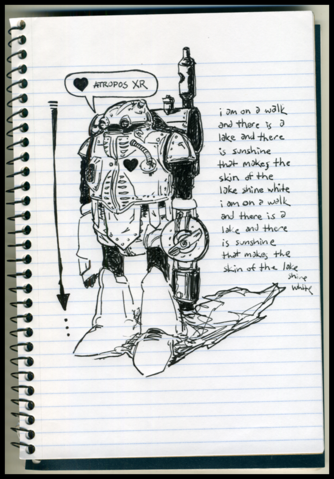 ATROPOS XR
i am on a walk
and there is a
lake and there
is sunshine
that makes the
skin of the
lake shine white
i am on a walk
and there is a
lake and there
is sunshine
that makes the
skin of the lake
shine
white